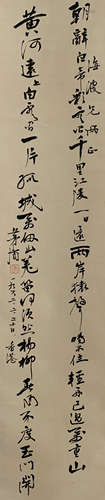 朝辭白帝彩雲間千里江陵一日還兩岸猿聲啼不住輕舟已過萬重山
黃河遠上白雲間一片孤城萬仞山羌笛何須怨楊柳春風不度玉門關
海波兄炳正
香港